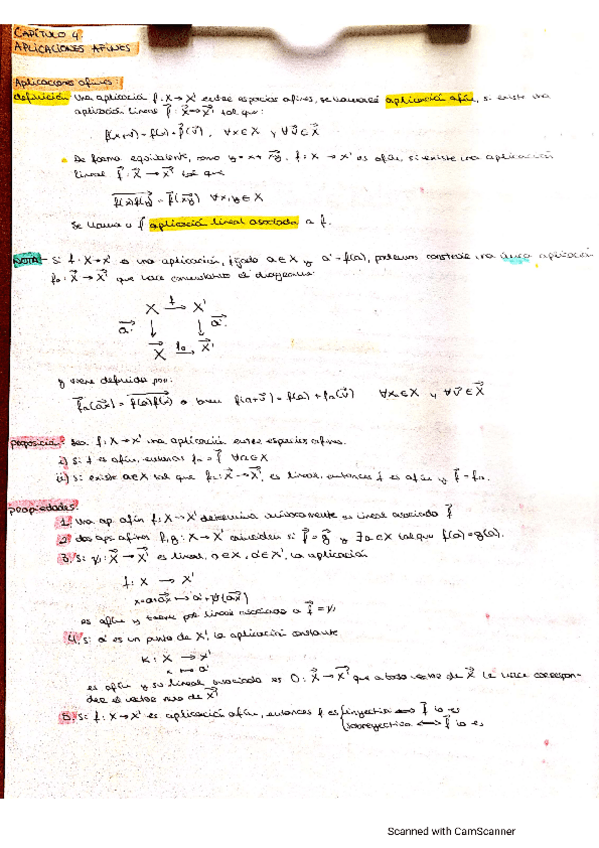 CAPÍTULO 4
APLICACIONES AFINES
Aplicaciones afines:
definición Una aplicación f: X → X' entre espacios afines, se llamará aplicación afín, si existe una
aplicación lineal f⃗: X⃗ → X⃗' tal que:
f(x+v⃗) = f(x) + f⃗(v⃗), ∀x∈X y ∀v⃗∈X⃗
De forma equivalente, como y = x + xy⃗, f: X → X' es afín, si existe una aplicación
lineal f⃗: X⃗ → X⃗' tal que
f(x)f(y)⃗ = f⃗(xy⃗) ∀x,y∈X
Se llama a f⃗ aplicación lineal asociada a f.
Nota - Si f: X → X' es una aplicación, fijado a∈X y a' = f(a), podemos construir una única aplicación
fa: X⃗ → X⃗' que hace conmutativo el diagrama:
X f→ X'
a⃗: ↓ ↓ a⃗':
X⃗ fa→ X⃗'
y viene definida por:
fa(ax⃗) = f(a)f(x)⃗ o bien f(a+v⃗) = f(a) + fa(v⃗) ∀x∈X y ∀v⃗∈X⃗
proposición: Sea f: X → X' una aplicación entre espacios afines.
i) Si f es afín, entonces fa = f⃗ ∀a∈X
ii) Si existe a∈X tal que fa: X⃗ → X⃗', es lineal, entonces f es afín y f⃗ = fa.
propiedades:
1. Una ap. afín f: X → X' determina unívocamente su lineal asociada f⃗
2. dos aps. afines f, g: X → X' coinciden si f⃗ = g⃗ y ∃a∈X tal que f(a) = g(a).
3. Si ψ: X⃗ → X⃗' es lineal, a∈X, a'∈X', la aplicación
f: X → X'
x = a + ax⃗ → a' + ψ(ax⃗)
es afín y tiene por lineal asociada a f⃗ = ψ
4. Si a' es un punto de X', la aplicación constante
K: X → X'
x → a'
es afín y su lineal asociada es 0: X⃗ → X⃗' que a todo vector de X⃗ le hace correspon-
der el vector nulo de X⃗'
5. Si f: X → X' es aplicación afín, entonces f es {inyectiva ⟺ f⃗ lo es
{sobreyectiva ⟺ f⃗ lo es
Scanned with CamScanner